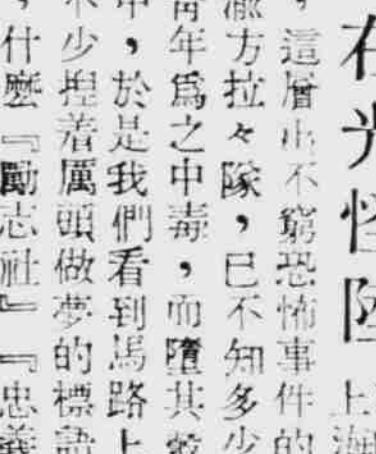 在光怪陸
上海
，這層出不窮恐怖事件的
方拉々隊，已不知多少
青年爲之中毒，而墮其彀
中，於是我們看到馬路上
不少揑着厲頭做夢的標語
，什麼『勵志社』『忠義